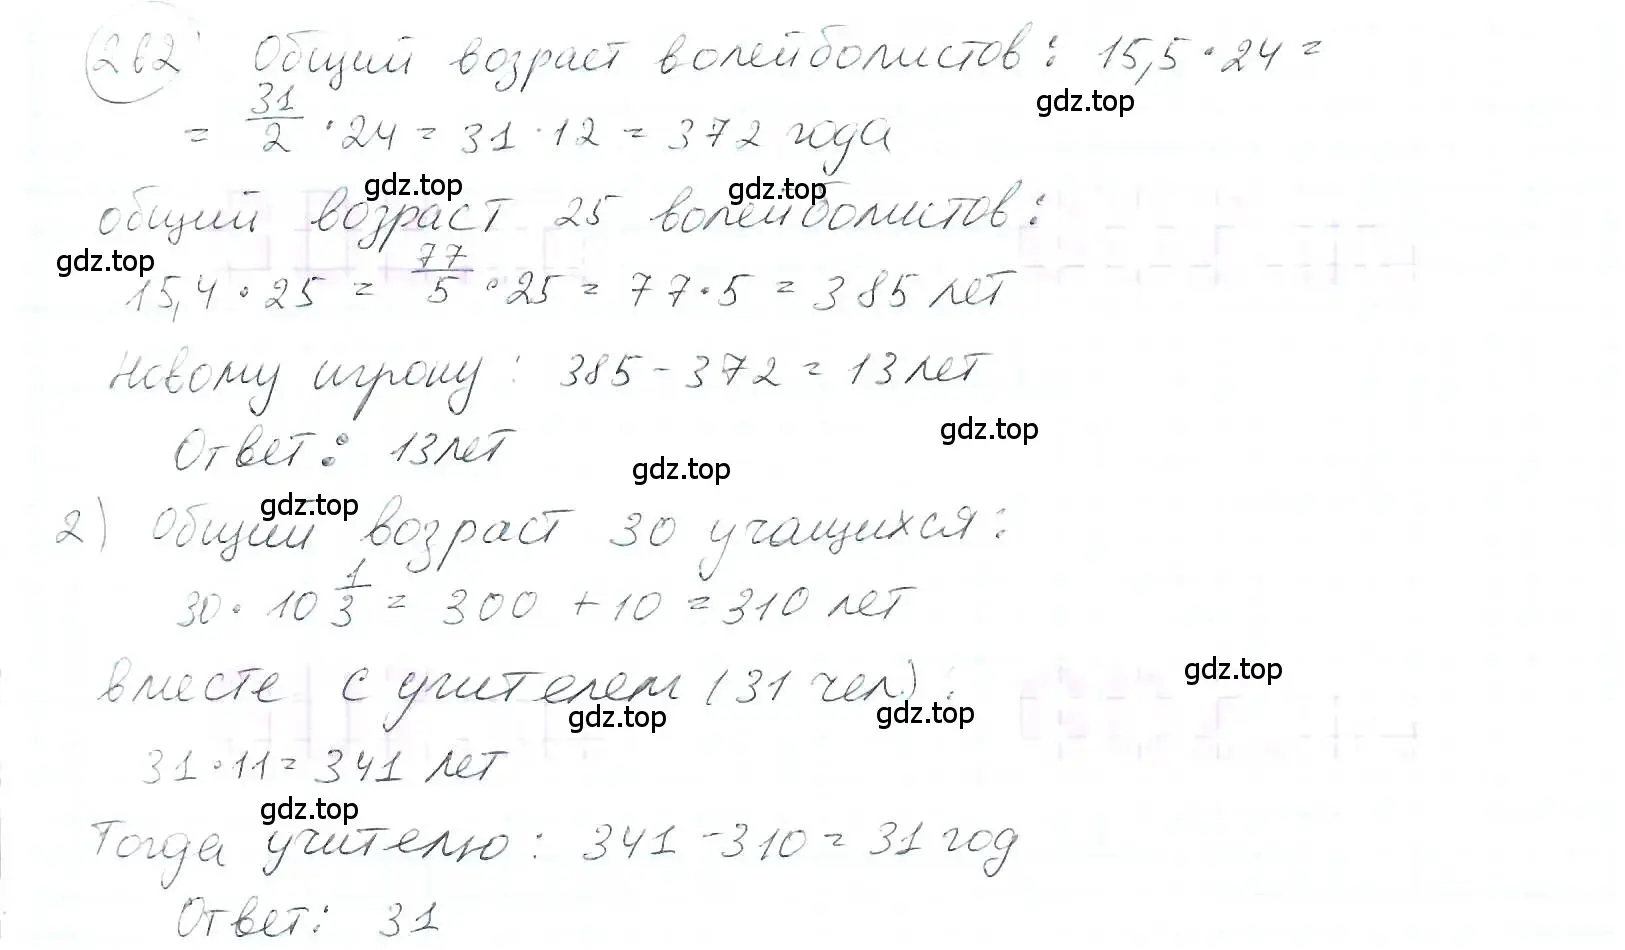 262 Общий возраст волейболистов: 15,5 · 24 =
= 31/2 · 24 = 31 · 12 = 372 года
общий возраст 25 волейболистов:
15,4 · 25 = 77/5 · 25 = 77 · 5 = 385 лет
Новому игроку: 385 - 372 = 13 лет
Ответ: 13 лет
2) Общий возраст 30 учащихся:
30 · 10 1/3 = 300 + 10 = 310 лет
вместе с учителем (31 чел):
31 · 11 = 341 лет
Тогда учителю: 341 - 310 = 31 год
Ответ: 31
gdz.top
gdz.top
gdz.top
gdz.top
gdz.top
gdz.top
gdz.top
gdz.top
gdz.top
gdz.top
gdz.top